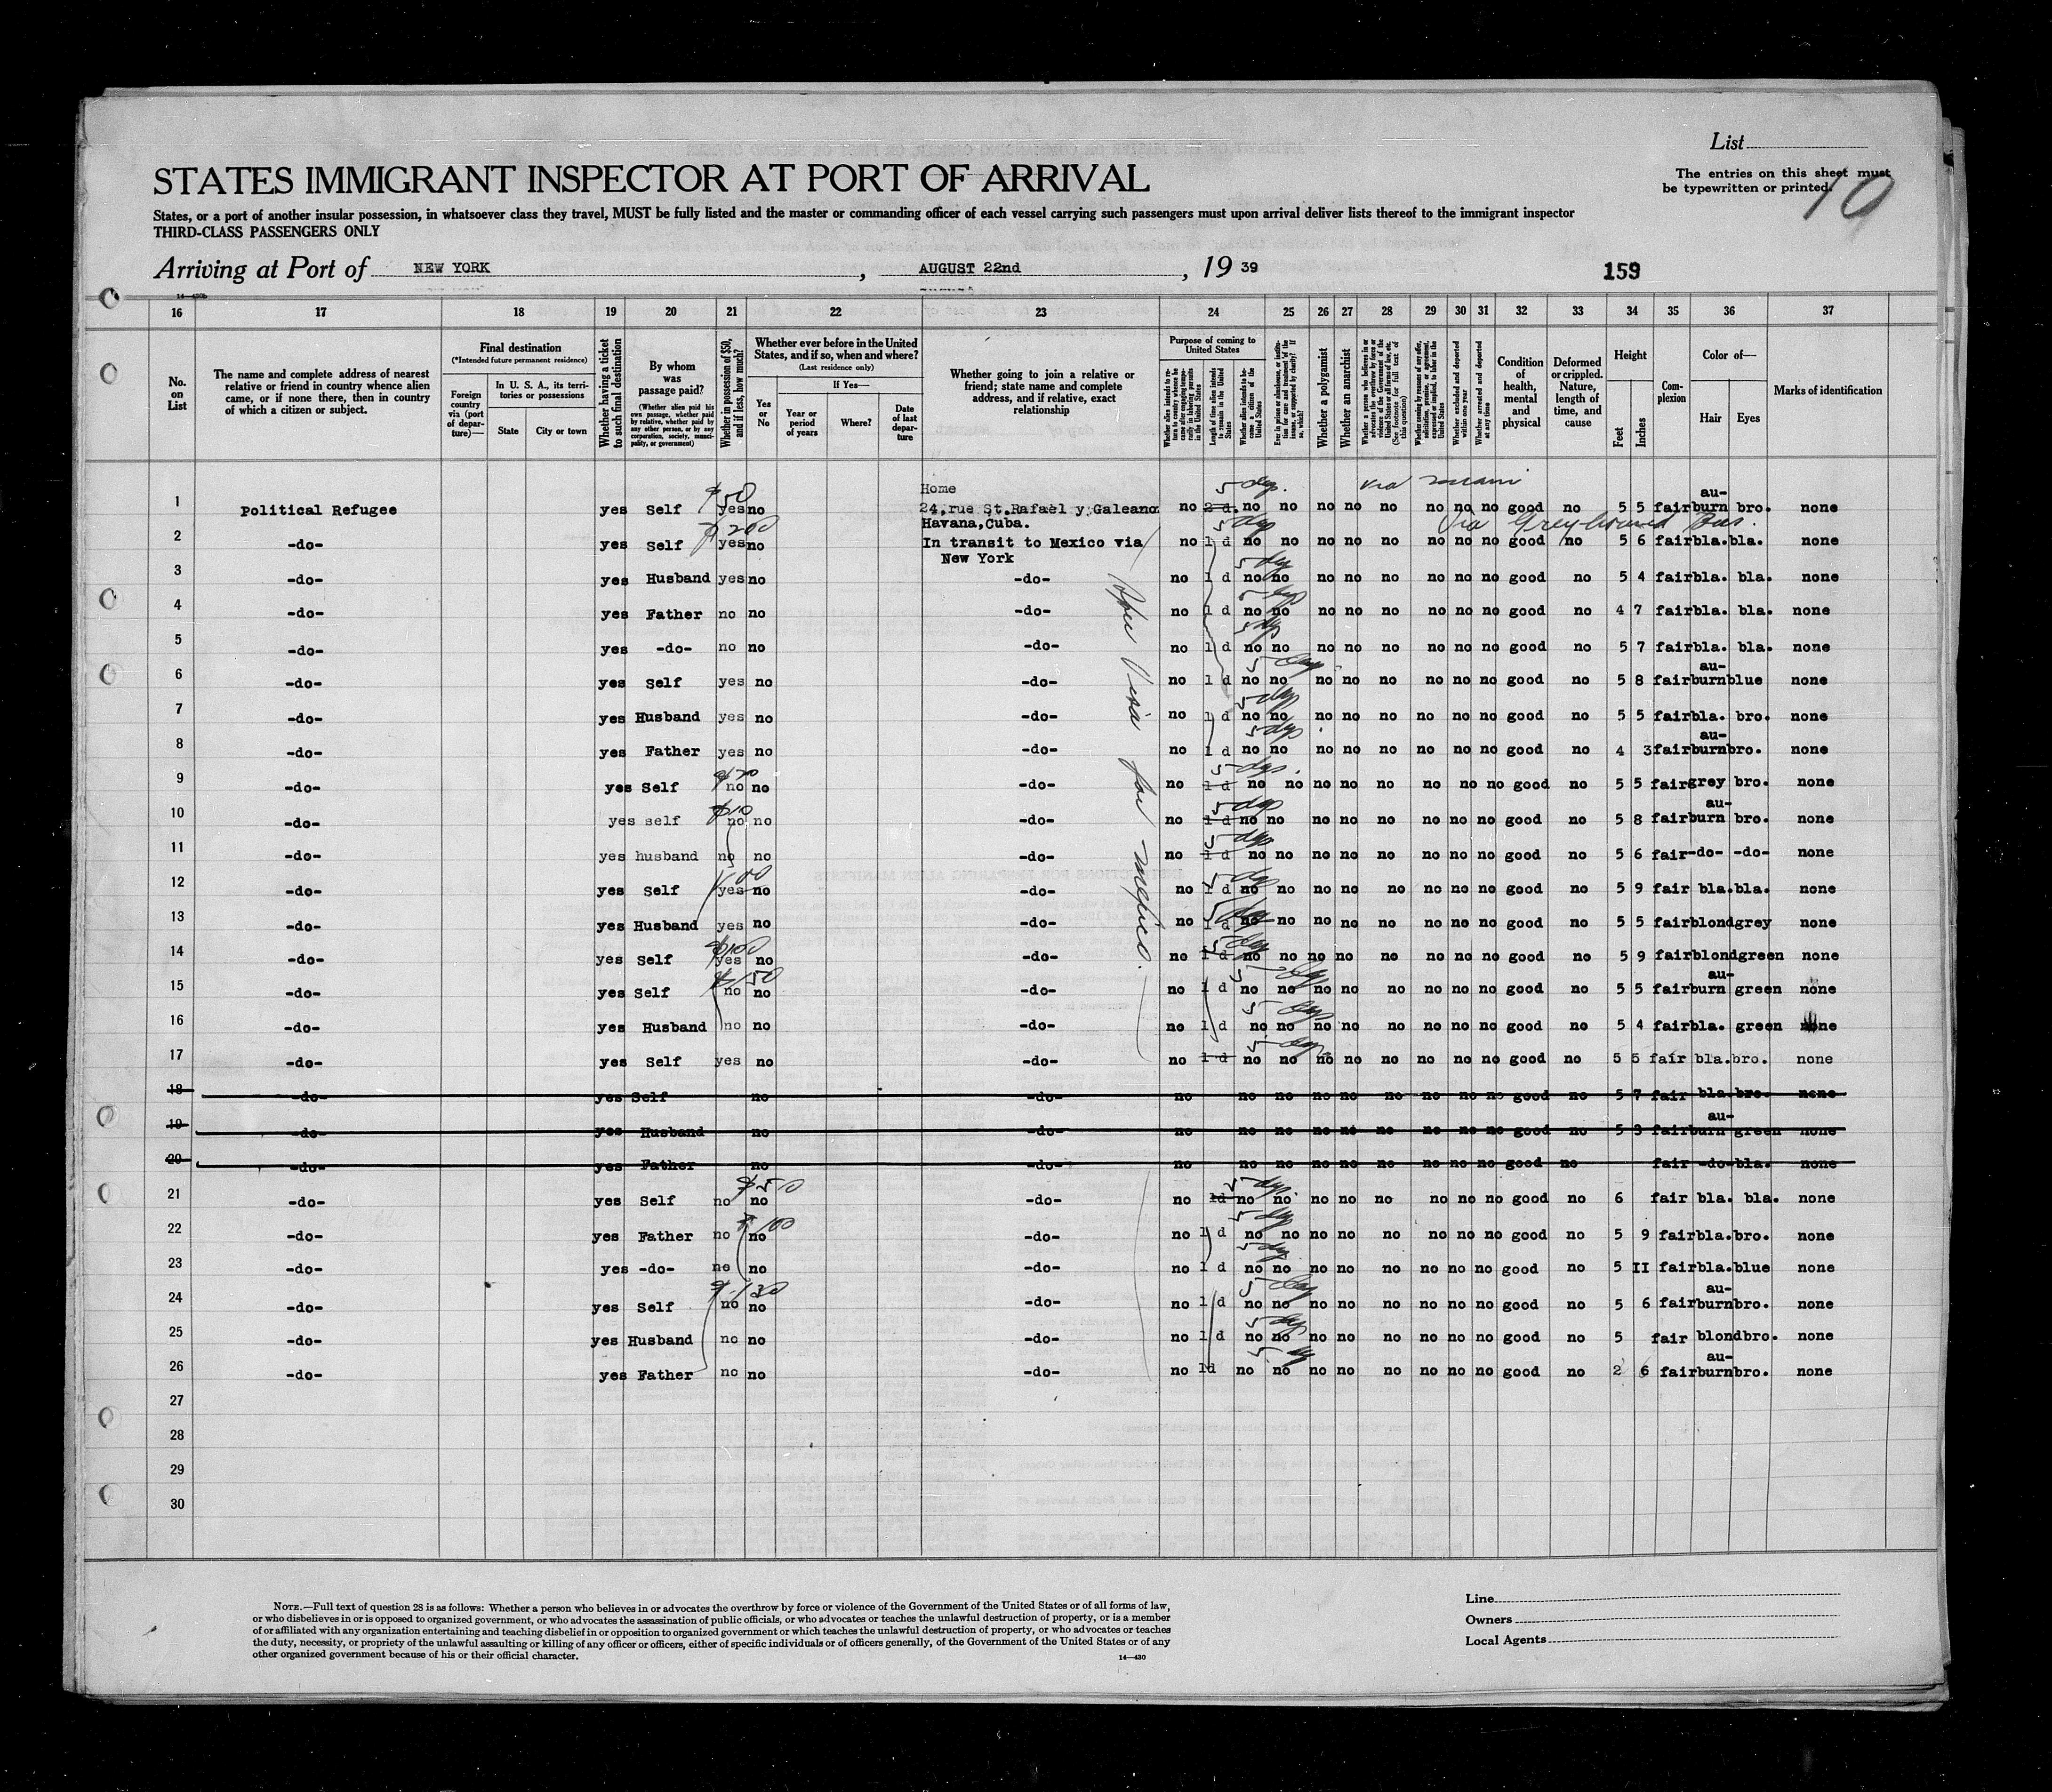 List
The entries on this sheet must
be typewritten or printed.
10
STATES IMMIGRANT INSPECTOR AT PORT OF ARRIVAL
States, or a port of another insular possession, in whatsoever class they travel, MUST be fully listed and the master or commanding officer of each vessel carrying such passengers must upon arrival deliver lists thereof to the immigrant inspector
THIRD-CLASS PASSENGERS ONLY
Arriving at Port of NEW YORK, AUGUST 22nd, 19 39
159
16 17 18 19 20 21 22 23 24 25 26 27 28 29 30 31 32 33 34 35 36 37
No. on List
The name and complete address of nearest relative or friend in country whence alien came, or if none there, then in country of which a citizen or subject.
Final destination
(*Intended future permanent residence)
Foreign country via (port of departure)—
In U. S. A., its territories or possessions
State
City or town
Whether having a ticket to such final destination
By whom was passage paid?
(Whether alien paid his own passage, whether paid by relative, whether paid by any other person, or by any corporation, society, municipality, or government)
Whether in possession of $50, and if less, how much?
Whether ever before in the United States, and if so, when and where?
(Last residence only)
Yes or No
If Yes—
Year or period of years
Where?
Date of last departure
Whether going to join a relative or friend; state name and complete address, and if relative, exact relationship
Purpose of coming to United States
Length of time alien intends to remain in the United States
Whether alien intends to become a citizen of the United States
Whether a polygamist
Whether an anarchist
Whether excluded and deported within one year
Whether arrested and deported at any time
Condition of health, mental and physical
Deformed or crippled. Nature, length of time, and cause
Height
Feet
Inches
Complexion
Color of—
Hair
Eyes
Marks of identification
via Miami
via Greyhound Bus.
1 Political Refugee yes Self $50 yes no Home 24,rue St.Rafael y Galeano Havana,Cuba. no 2 d. 5 dys. no no no no no no no no good no 5 5 fair au-burn bro. none
2 -do- yes Self $200 yes no In transit to Mexico via New York no 1 d 5 dys no no no no no no no no good no 5 6 fair bla. bla. none
3 -do- yes Husband yes no -do- no 1 d 5 dys no no no no no no no no good no 5 4 fair bla. bla. none
4 -do- yes Father no no -do- no 1 d 5 dys no no no no no no no no good no 4 7 fair bla. bla. none
5 -do- yes -do- no no -do- no 1 d 5 dys no no no no no no no no good no 5 7 fair bla. bla. none
6 -do- yes Self yes no -do- no 1 d 5 days no no no no no no no no good no 5 8 fair au-burn blue none
7 -do- yes Husband yes no -do- no 1 d 5 dys no no no no no no no no good no 5 5 fair bla. bro. none
8 -do- yes Father yes no -do- no 1 d 5 dys no no no no no no no no good no 4 3 fair au-burn bro. none
9 -do- yes Self no no -do- no 1 d 5 dys. no no no no no no no no good no 5 5 fair grey bro. none
10 -do- yes self $10 no no -do- no 1 d 5 dys no no no no no no no no good no 5 8 fair au-burn bro. none
11 -do- yes husband no no -do- no 1 d 5 dys no no no no no no no no good no 5 6 fair -do- -do- none
12 -do- yes Self yes no -do- no 1 d 5 dys no no no no no no no no good no 5 9 fair bla. bla. none
13 -do- yes Husband yes no -do- no 1 d 5 dys no no no no no no no no good no 5 5 fair blond grey none
14 -do- yes Self $100 yes no -do- no 1 d 5 dys no no no no no no no no good no 5 9 fair blond green none
15 -do- yes Self $150 no no -do- no 1 d 5 dys no no no no no no no no good no 5 5 fair au-burn green none
16 -do- yes Husband no no -do- no 1 d 5 days no no no no no no no no good no 5 4 fair bla. green none
17 -do- yes Self yes no -do- no 1 d 5 dys no no no no no no no no good no 5 5 fair bla. bro. none
18 -do- yes Self no -do- no no no no no no no no no good no 5 7 fair bla. bro. none
19 -do- yes Husband no -do- no no no no no no no no no good no 5 3 fair au-burn green none
20 -do- yes Father no -do- no no no no no no no no no good no fair -do- bla. none
21 -do- yes Self no $50 no -do- no 1d 5 dys. no no no no no no no no good no 6 fair bla. bla. none
22 -do- yes Father no $100 no -do- no 1 d 5 dys no no no no no no no no good no 5 9 fair bla. bro. none
23 -do- yes -do- no no -do- no 1 d 5 dys no no no no no no no no good no 5 II fair bla. blue none
24 -do- yes Self $130 no no -do- no 1 d 5 days no no no no no no no no good no 5 6 fair au-burn bro. none
25 -do- yes Husband no no -do- no 1 d 5 dys no no no no no no no no good no 5 fair blond bro. none
26 -do- yes Father no no -do- no 1d 5 dy no no no no no no no no good no 2 6 fair au-burn bro. none
27
28
29
30
Visa for Mexico.
NOTE.—Full text of question 28 is as follows: Whether a person who believes in or advocates the overthrow by force or violence of the Government of the United States or of all forms of law,
or who disbelieves in or is opposed to organized government, or who advocates the assassination of public officials, or who advocates or teaches the unlawful destruction of property, or is a member
of or affiliated with any organization entertaining and teaching disbelief in or opposition to organized government or which teaches the unlawful destruction of property, or who advocates or teaches
the duty, necessity, or propriety of the unlawful assaulting or killing of any officer or officers, either of specific individuals or of officers generally, of the Government of the United States or of any
other organized government because of his or their official character.
14—430
Line
Owners
Local Agents